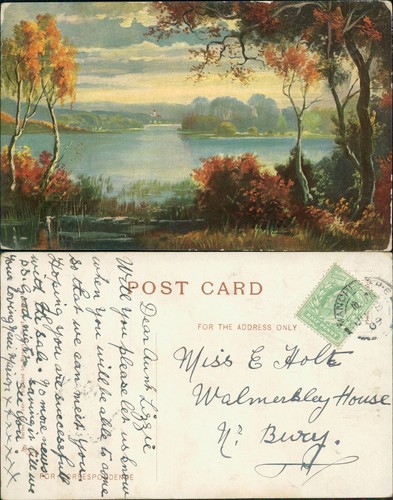 POST CARD
FOR THE ADDRESS ONLY
Miss E Holt
Walmersley House
Nr. Bury.
Dear Aunt Lizzie
Will you please let us know
when you will be able to come
so that we can meet you
Hoping you are successful
with the sale. No more news
till we see you.
Good night
Your loving niece Marion x x x x x x
FOR CORRESPONDENCE